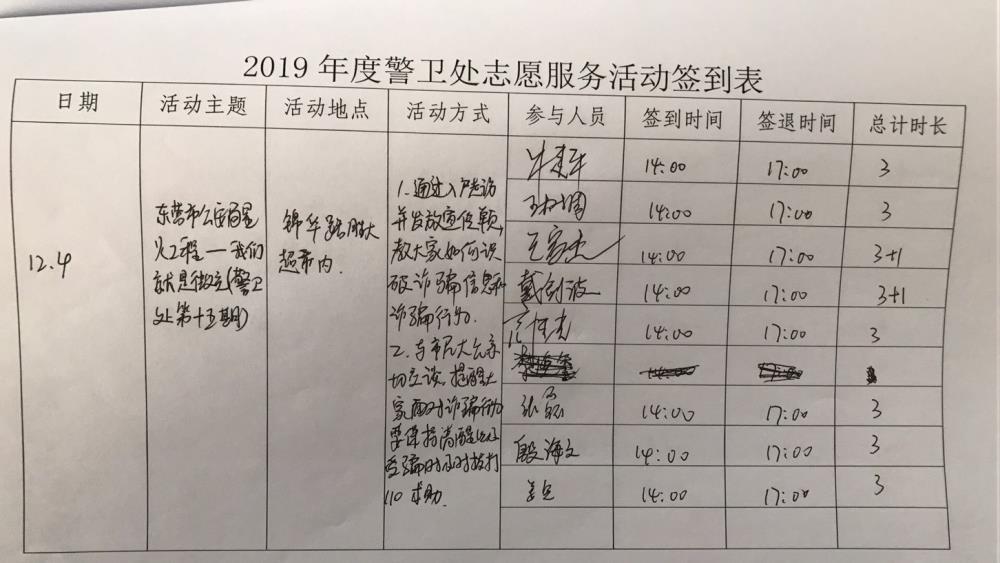 2019 年度警卫处志愿服务活动签到表
日期 活动主题 活动地点 活动方式 参与人员 签到时间 签退时间 总计时长
12.4
东营市公安
火工程——我们
就是微光(警卫
处第十五期)
锦华路胜大
超市内.
1.通过入户走访
并发放宣传单页,
教大家如何识
破诈骗信息和
诈骗行为.
2.与市民大众亲
切交谈,提醒大
家面对诈骗行为
要保持清醒
受骗时及时拨打
110求助.
14:00 17:00 3
14:00 17:00 3
王家杰 14:00 17:00 3+1
戴剑波 14:00 17:00 3+1
14:00 17:00 3
张磊 14:00 17:00 3
殷海文 14:00 17:00 3
14:00 17:00 3